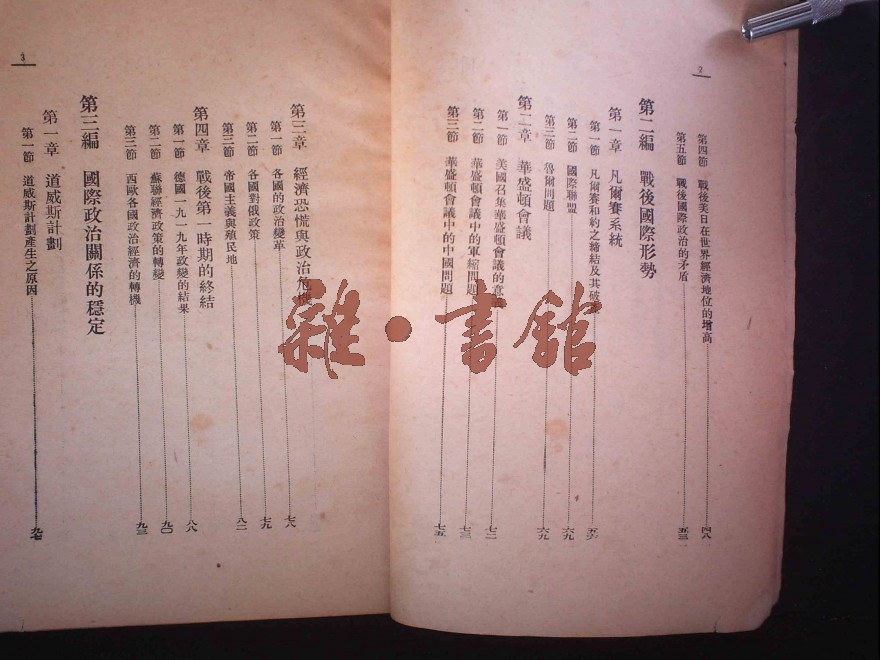 2
第四節 戰後美日在世界經濟地位的增高 四八
第五節 戰後國際政治的矛盾 五三
第二編 戰後國際形勢
第一章 凡爾賽系統
第一節 凡爾賽和約之締結及其破 五六
第二節 國際聯盟 六九
第三節 魯爾問題 六九
第二章 華盛頓會議
第一節 美國召集華盛頓會議的意 七二
第二節 華盛頓會議中的軍縮問題 七三
第三節 華盛頓會議中的中國問題 七五
3
第三章 經濟恐慌與政治危機
第一節 各國的政治變革 七八
第二節 各國對俄政策 七九
第三節 帝國主義與殖民地 八二
第四章 戰後第一時期的終結
第一節 德國一九一九年政變的結果 八八
第二節 蘇聯經濟政策的轉變 九〇
第三節 西歐各國政治經濟的轉機 九三
第三編 國際政治關係的穩定
第一章 道威斯計劃
第一節 道威斯計劃產生之原因 九七
雜·書館